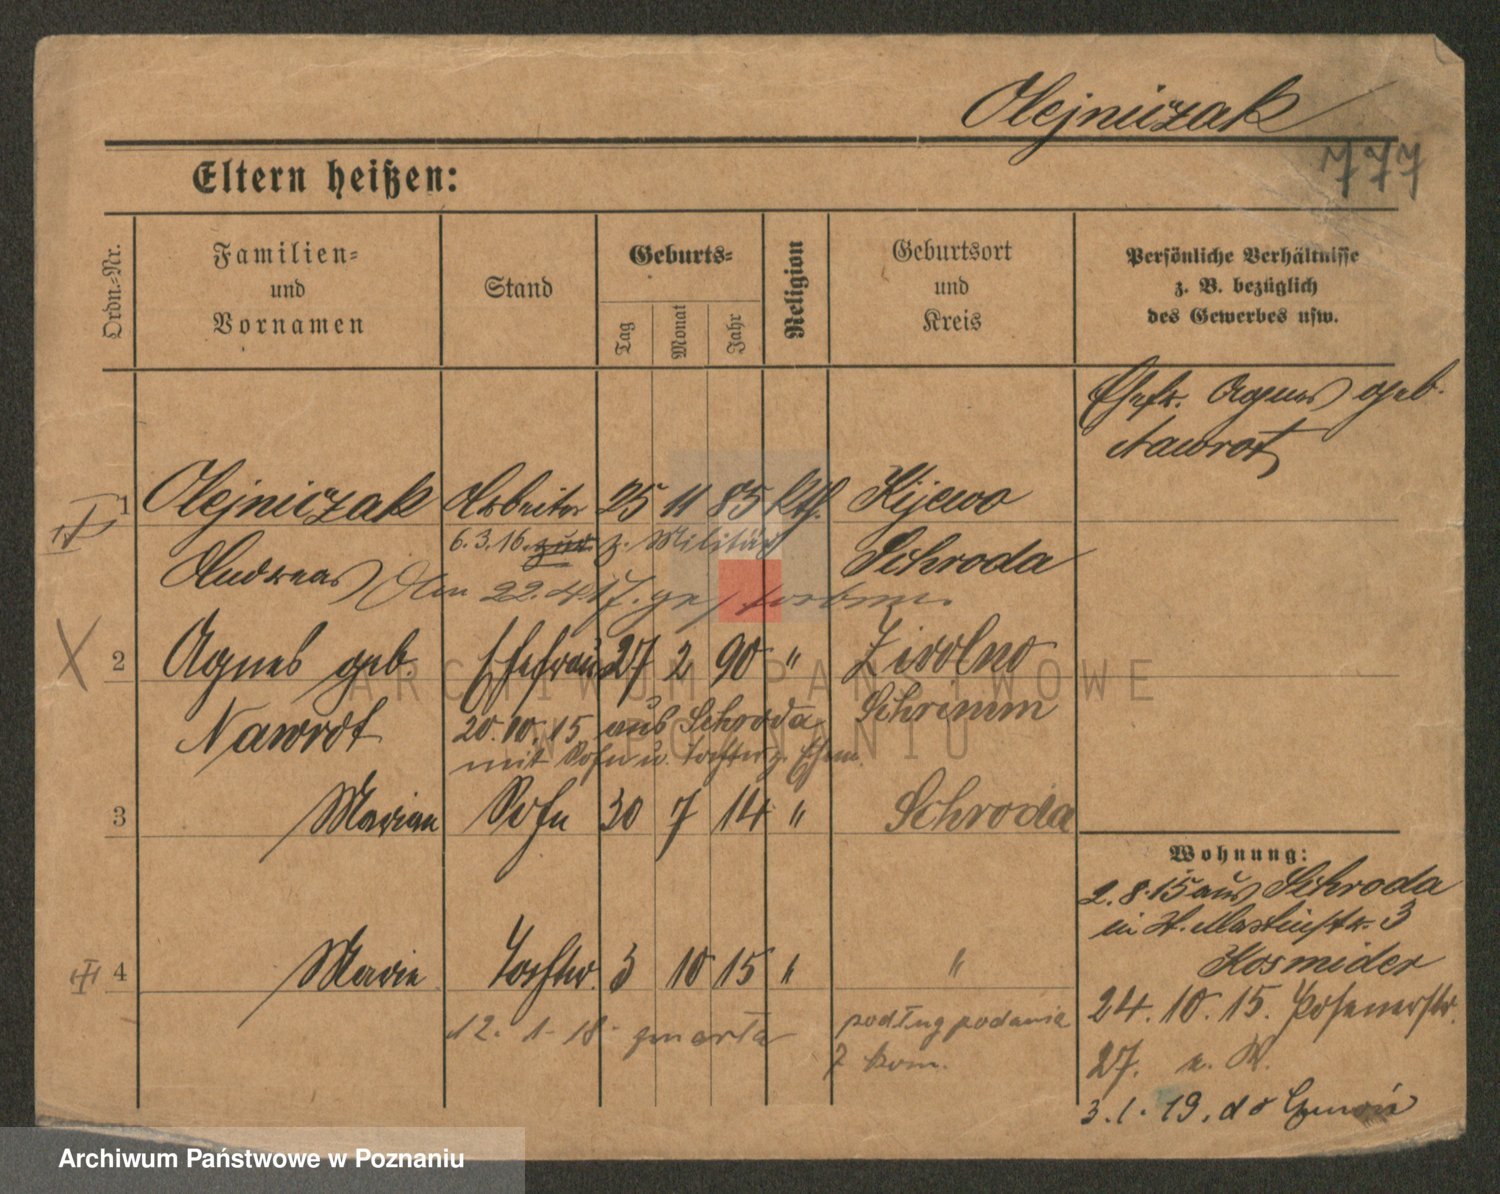 Olejniczak
777
Eltern heißen:
Ordn.-Nr.
Familien-
und
Vornamen
Stand
Geburts-
Tag
Monat
Jahr
Religion
Geburtsort
und
Kreis
Persönliche Verhältnisse
z. B. bezüglich
des Gewerbes usw.
Ehefr. Agnes geb.
Nawrot
1 Olejniczak Arbeiter 25 11 85 kth. Kijewo
6.3.16. zur. z. Militär
Andreas Schroda
Am 22.4.17. gestorben.
2 Agnes geb. Ehefrau 27 2 90 " 
Nawrot Schrimm
20.10.15 aus Schroda
mit Sohn u. Tochter z. Ehem.
3 Marian Sohn 30 7 14 " Schroda
4 Marie Tochter 3 10 15 " "
12. 1. 18. zmarła
podług podania
z kom.
Wohnung:
2.8.15 aus Schroda
in St. Martinstr. 3
Kosmider
24. 10. 15. Posenerstr.
27.
3.1.19. do
ARCHIWUM PAŃSTWOWE
W POZNANIU
Archiwum Państwowe w Poznaniu